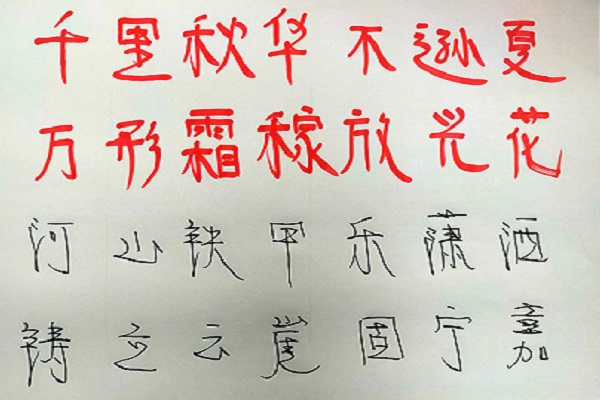 千里秋华不逊夏
万形霜稼放光花
河山铁甲乐潇洒
铸立云崖固宁嘉